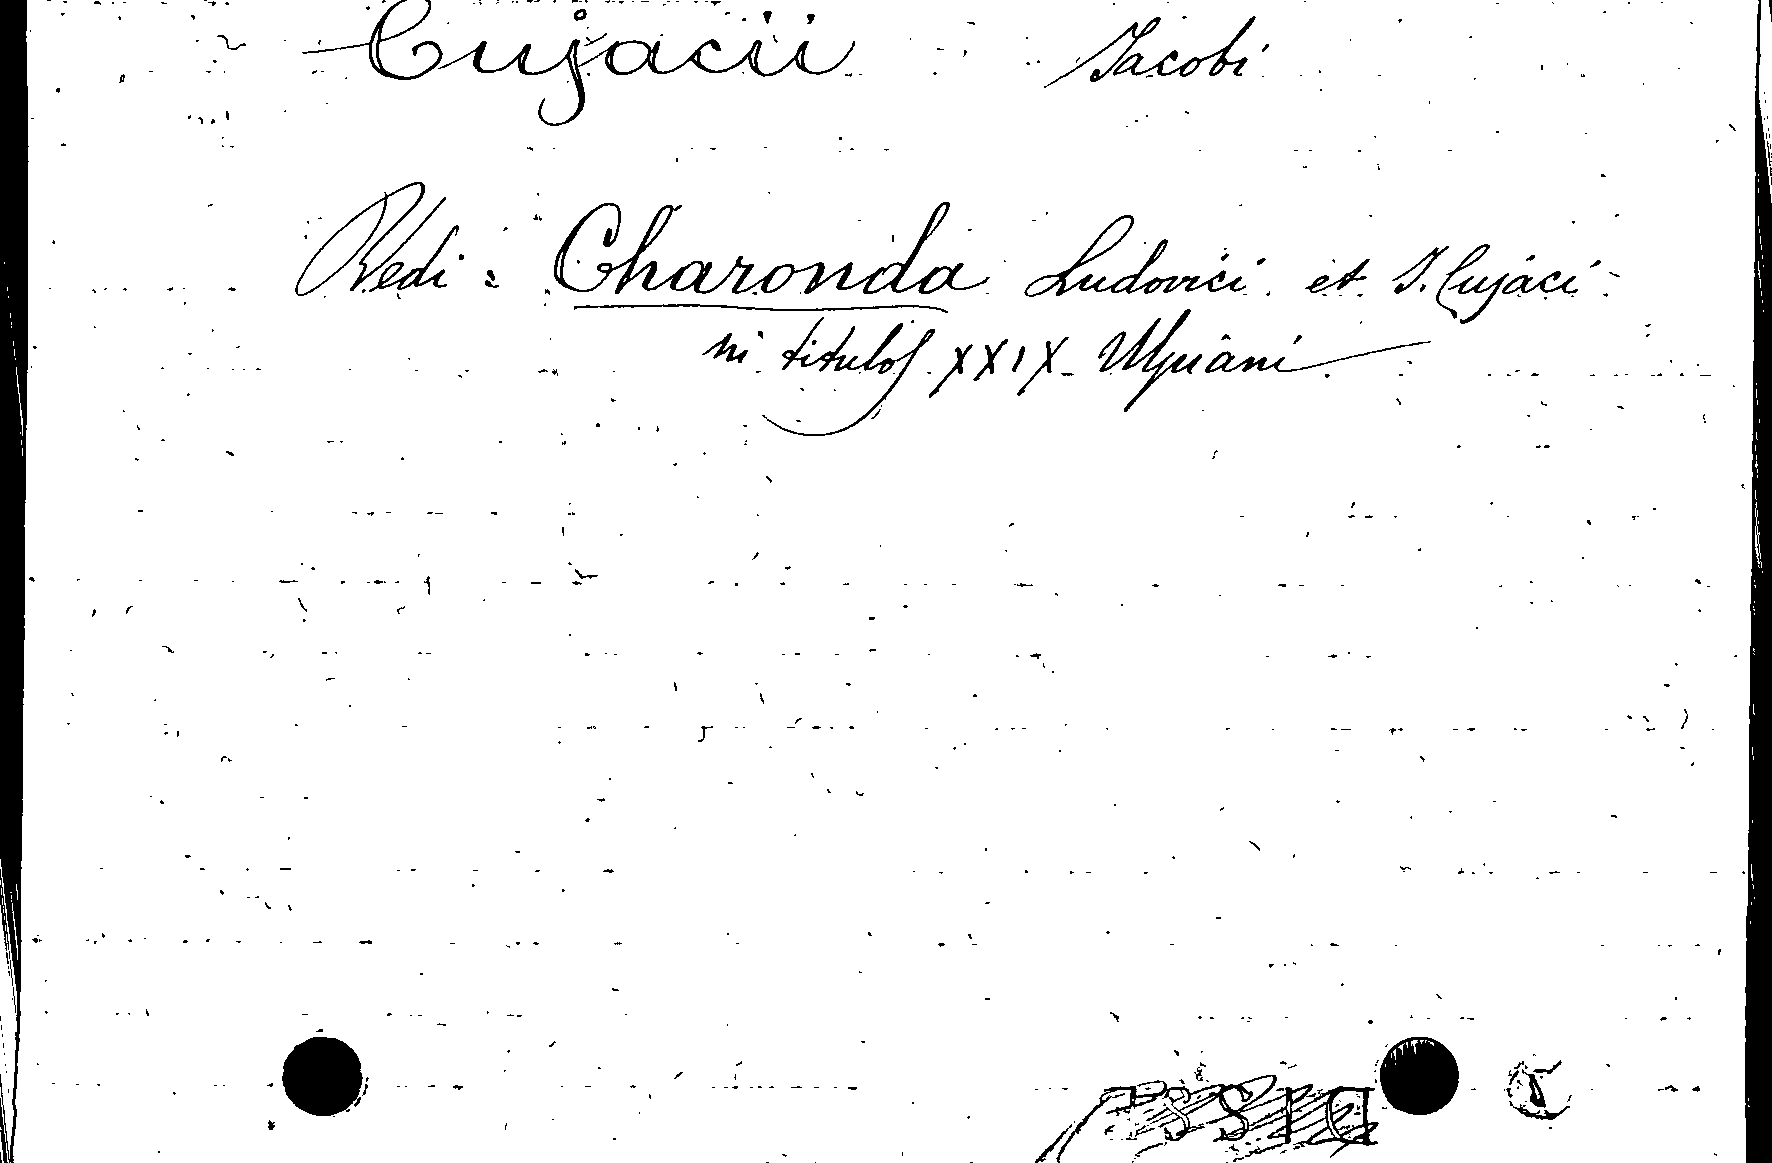 Cujacii Jacobi
Vedi: Charonda Ludovici et J. Cujaci
in titulos XXIX Ulpiani